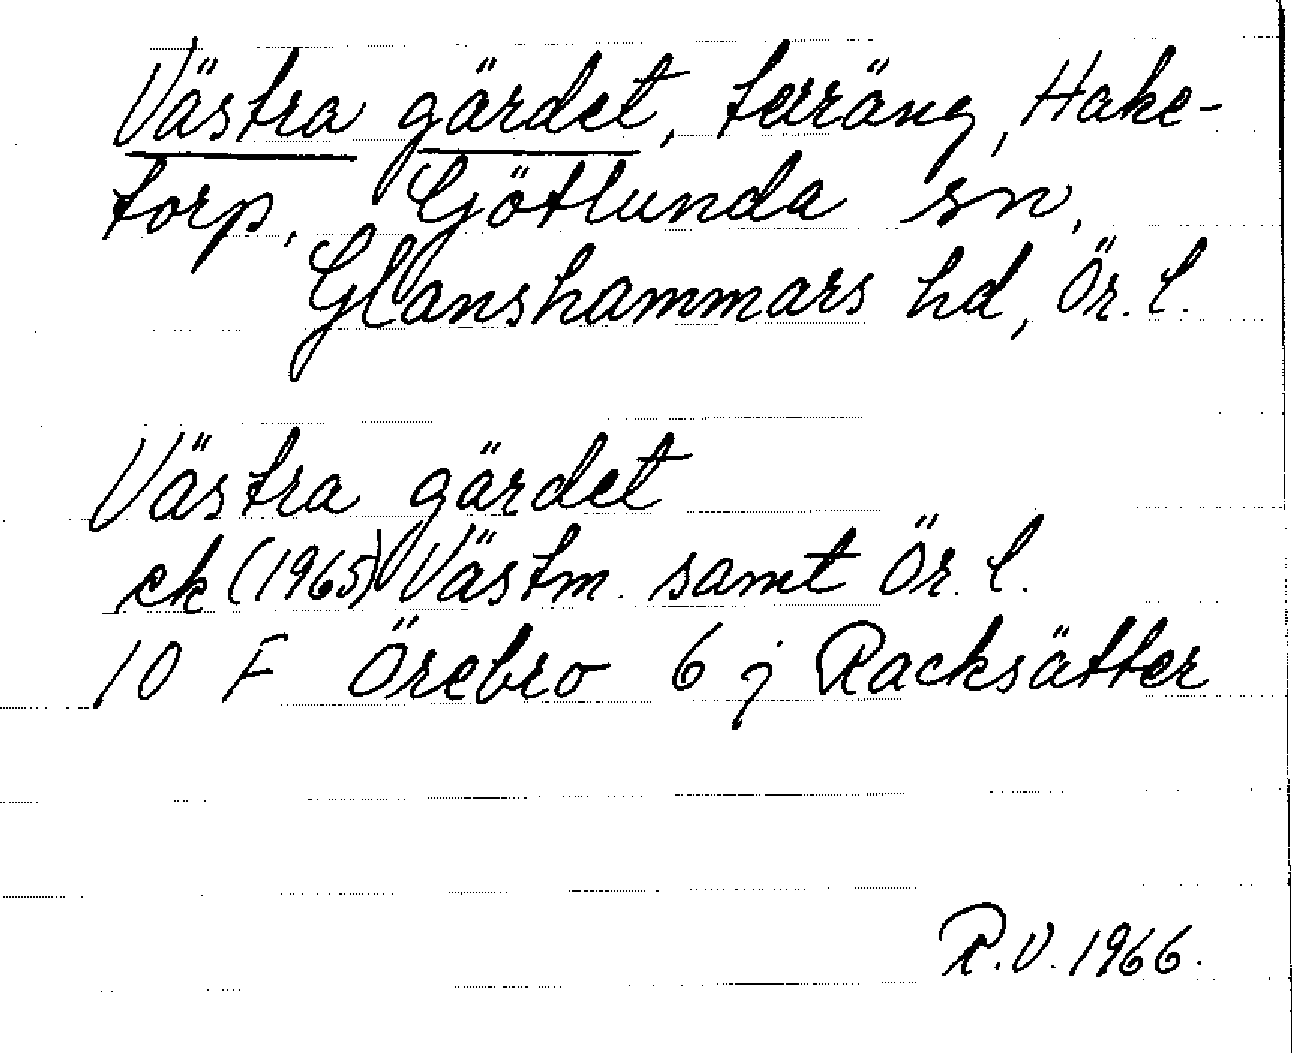 Västra gärdet, terräng, Hake-
torp, Götlunda sn,
Glanshammars hd, Ör. l.
Västra gärdet
ek (1965) Västm. samt Ör. l.
10 F Örebro 6 j Racksätter
R.V. 1966.